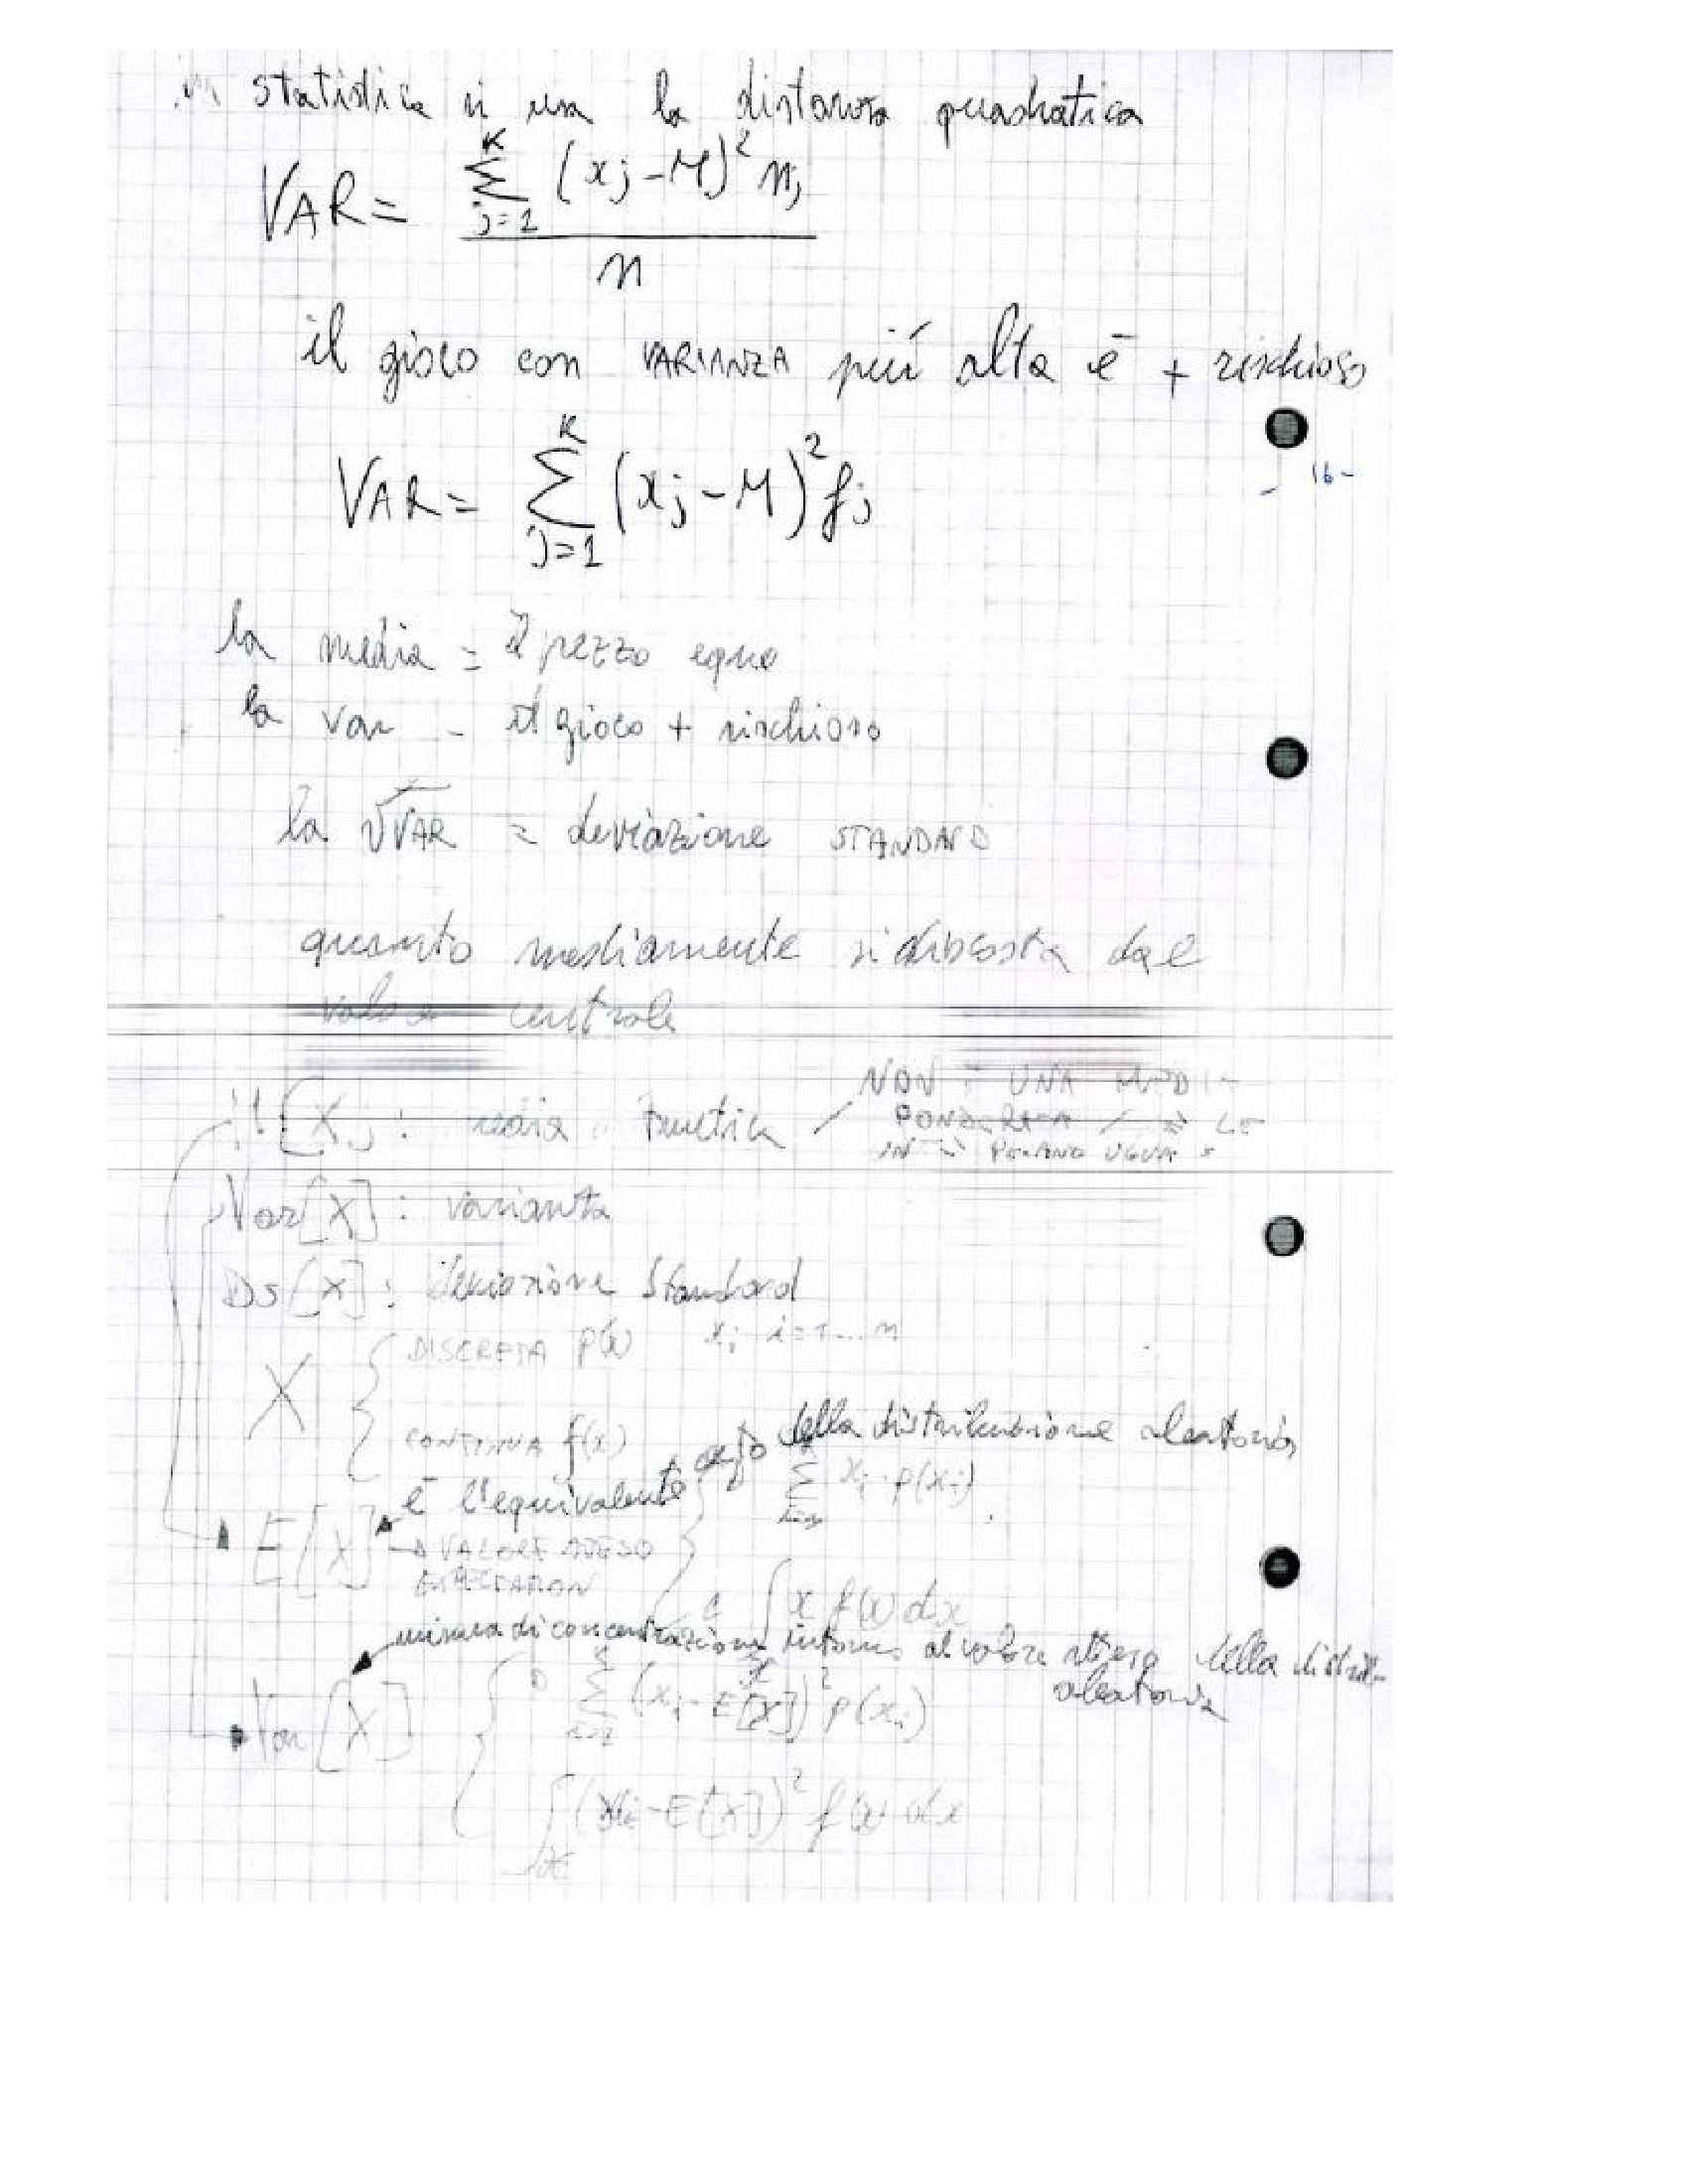 in statistica si usa la distanza quadratica
VAR = \frac{\sum_{j=1}^{K} (x_j - M)^2 n_j}{n}
il gioco con VARIANZA più alta è + rischioso
VAR = \sum_{j=1}^{K} (x_j - M)^2 f_j
- 16 -
la media = il prezzo equo
la var - il gioco + rischioso
la √VAR = deviazione STANDARD
quanto mediamente si discosta dal
valore centrale
NON È UNA
M[X] : media
PONDERATA
Var[X] : varianza
DS[X] : deviazione standard
X { DISCRETA p(x) x_i i=1...n
della distribuzione aleatoria
CONTINUA f(x)
\sum x_i · p(x_i)
è l'equivalente
E[X] → VALORE ATTESO
EXPECTATION
∫ x f(x) dx
misura di concentrazione intorno al valore atteso della distrib.
aleatoria
Var[X] { D \sum_{i=1} (x_i - E[X])^2 p(x_i)
∫ (x - E[X])^2 f(x) dx